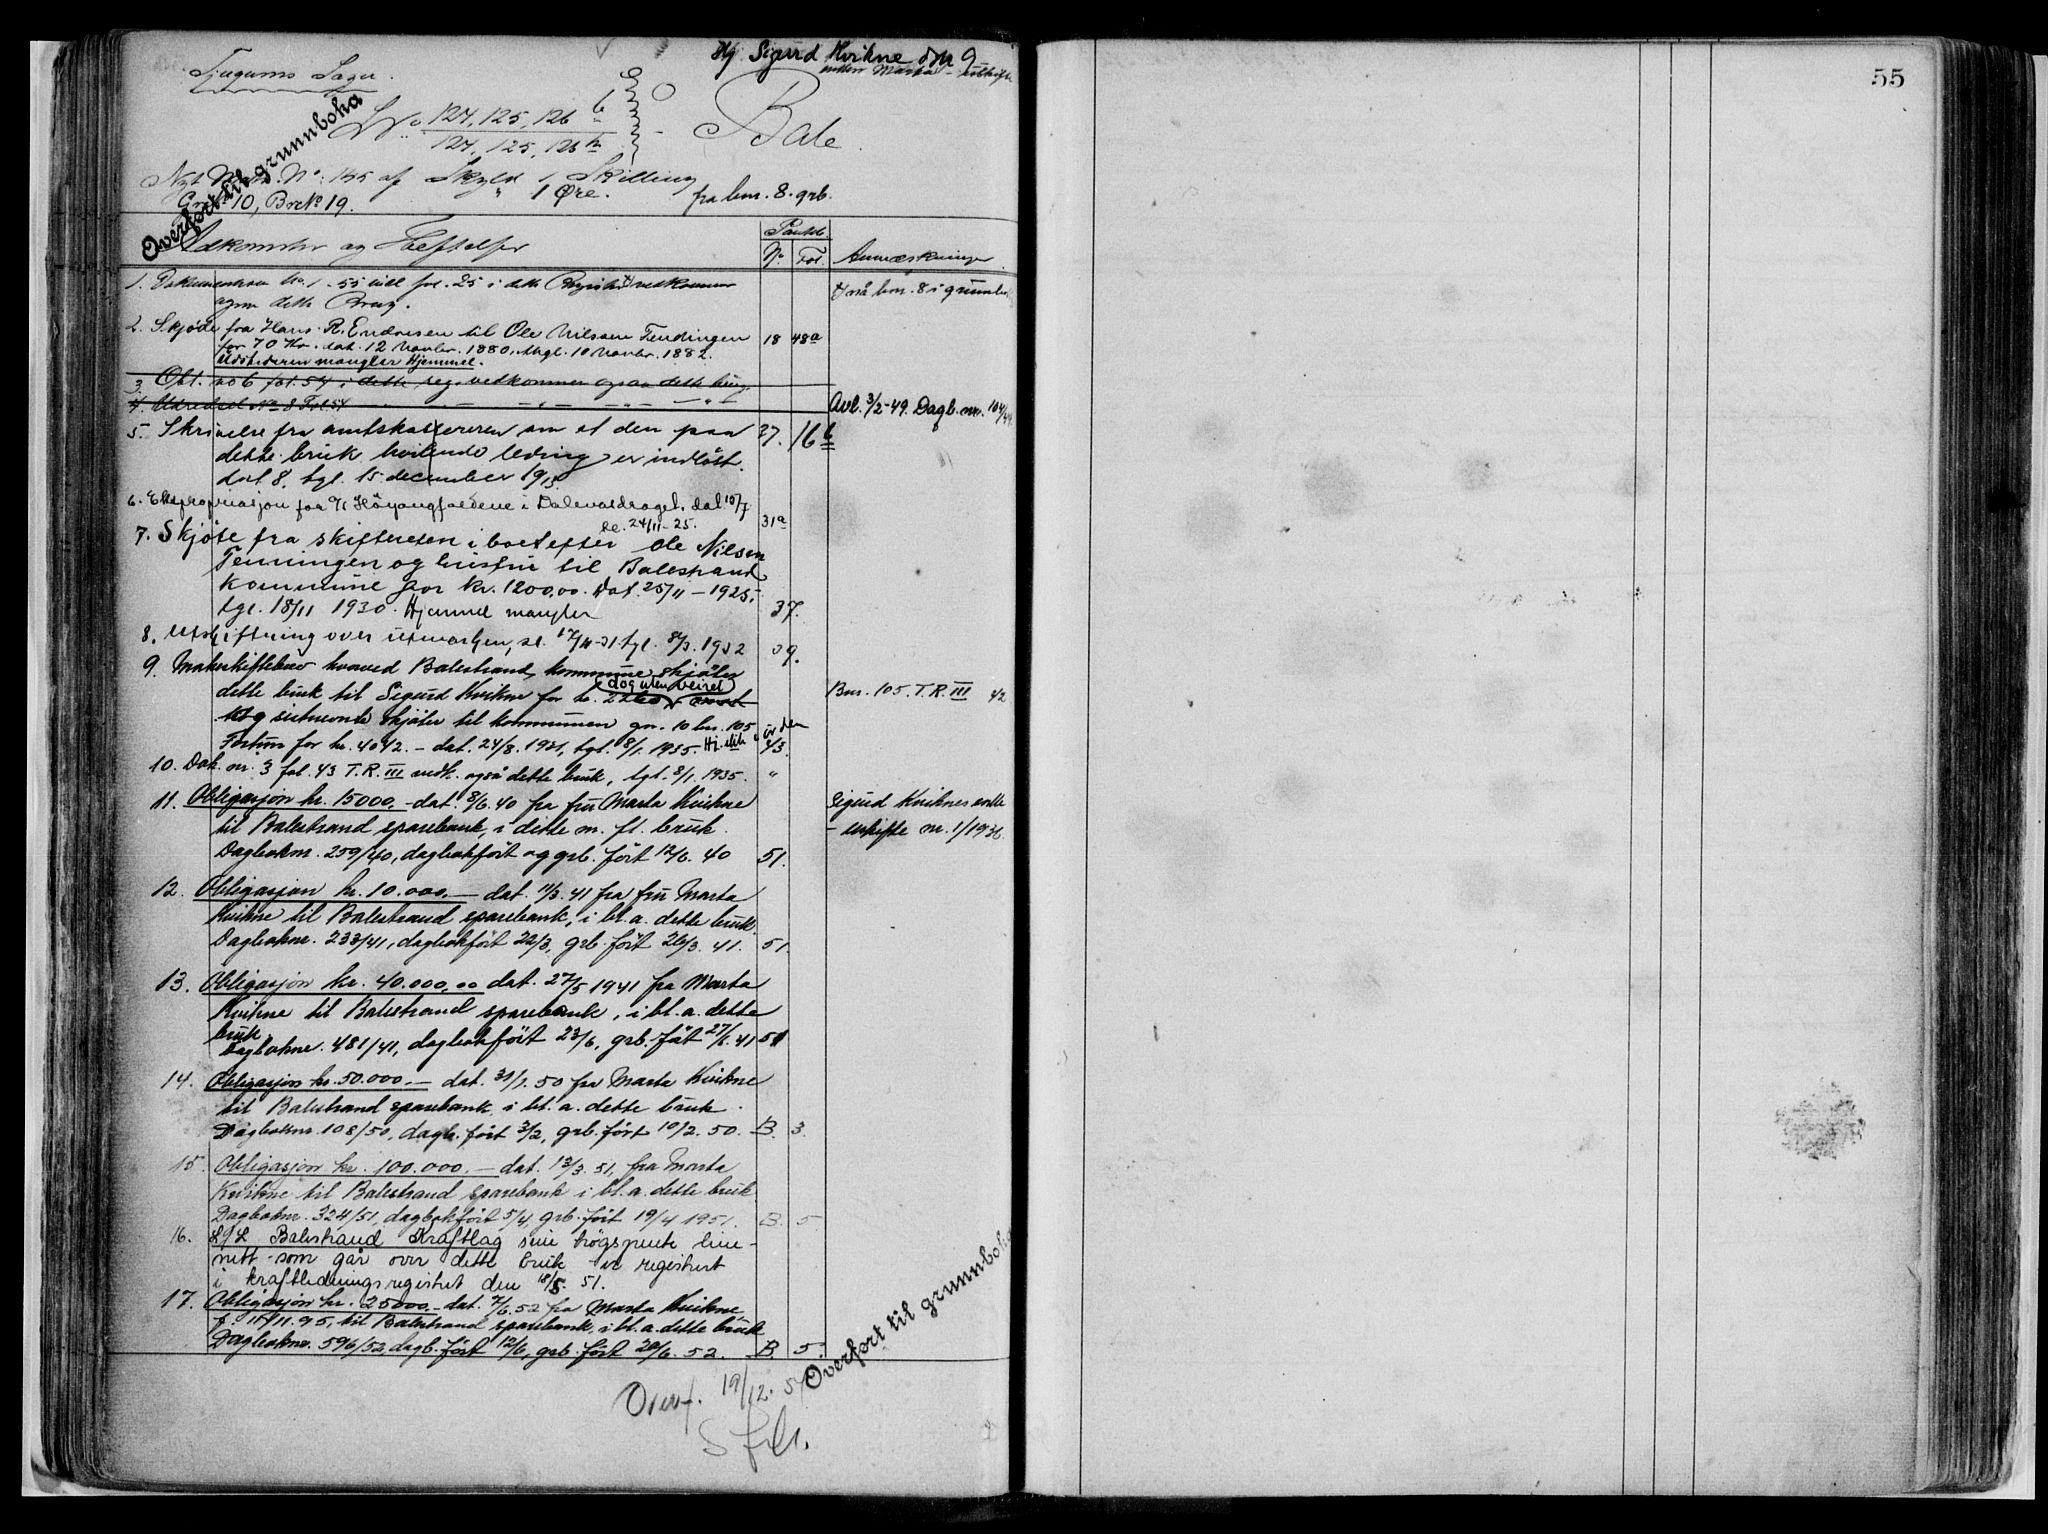 Hj. Sigurd Kvikne dok 9
enken Marta - uskifte
Tjugums Sogn.
55
L№ 127, 125, 126 b
127, 125, 126 h
Bale.
Nyt Matr. №: 155 af Skyld 1 Skilling
Gr.№ 10, Br.№ 19. " 1 Øre. fra bnr. 8. grb.
Overført til grunnboka
Adkomster og Heftelser
Pantb.
№ Fol. Anmærkninger
1. Dokumenterne No. 1-55 inkl fol. 25 i dette Register vedkommer
ogsaa dette Brug.
også bnr. 8 i grunnbok
2. Skjøde fra Hans R. Endresen til Ole Nilsen Tendingen
for 70 Kr. dat. 12 Novbr. 1880, thgl. 10 Novbr. 1882. 18 48a
Udstederen mangler Hjemmel.
3. Obl. no 6 fol. 54 i dette reg. vedkommer ogsaa dette brug.
4. Udredsel No 8 Fol 54
Avl. 3/2-49. Dagb. nr. 104/49
5. Skrivelse fra amtskassereren om at den paa 27. 16b
dette bruk hvilende leding er indløst.
dat 8, tgl. 15 december 1915.
6. Ekspropriasjon for A/S Høyangfaldene i Dalevasdraget. dat 10/7
se. 24/11-25. 31a
7. Skjøte fra skifteretten i boet efter Ole Nilsen
Tenningen og hustru til Balestrand
kommune for kr. 1200,00. Dat. 25/11-1925,
tgl. 18/11 1930. Hjemmel mangler 37.
8. Utskiftning over utmarken, sl. 17/11-31. tgl. 8/3. 1932 39.
9. Makeskiftebrev hvorved Balestrand kommune skjøter
dette bruk til Sigurd Kvikne for kr. 2260
dog uten veiret
Bnr. 105. T.R. III 42
og sistnevnte skjøter til kommunen gn. 10 bn. 105
Fortun for kr. 4042.- dat. 24/8. 1931, tgl. 8/1. 1935. Hj. i orden 43.
10. Dok. nr. 3 fol. 43 T.R. III vedk. også dette bruk, tgl. 8/1. 1935. "
11. Obligasjon kr. 15000,- dat. 8/6. 40 fra fru Marta Kvikne
til Balestrand sparebank, i dette m. fl. bruk.
Dagboknr. 259/40, dagbokført og grb. ført 12/6. 40 51.
Sigurd Kviknes enke
- uskifte nr. 1/1936.
12. Obligasjon kr. 10.000.- dat. 11/3. 41 fra fru Marta
Kvikne til Balestrand sparebank, i bl.a. dette bruk.
Dagboknr. 233/41, dagbokført 22/3, grb. ført 26/3. 41. 51.
13. Obligasjon kr. 40.000,00 dat. 27/5 1941 fra Marta
Kvikne til Balestrand sparebank, i bl.a. dette
bruk.
Dagboknr. 481/41, dagbokført 23/6, grb. ført 27/6. 41 51
14. Obligasjon kr. 50.000.- dat. 31/1. 50 fra Marta Kvikne
til Balestrand sparebank i bl.a. dette bruk.
Dagboknr. 108/50, dagb. ført 3/2, grb. ført 10/2. 50. B. 3.
15. Obligasjon kr. 100.000.- dat. 13/3. 51, fra Marta
Kvikne til Balestrand sparebank i bl.a. dette bruk
Dagboknr. 324/51, dagbokført 5/4, grb. ført 19/4 1951. B. 5
16. L/L Balestrand Kraftlag sine høgspente line-
nett som går over dette bruk er registrert
i kraftledningsregistret den 18/5. 51.
17. Obligasjon kr. 25000.- dat. 7/6. 52 fra Marta Kvikne,
f. 11/11. 95, til Balestrand sparebank, i bl.a. dette bruk
Dagboknr. 596/52, dagb. ført 12/6, grb. ført 20/6. 52. B. 5.
Overf. 19/12. 57
Overført til grunnboka